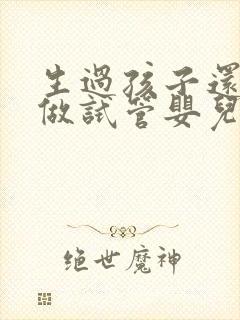 生過孩子還
做試管嬰兒
絕世魔神